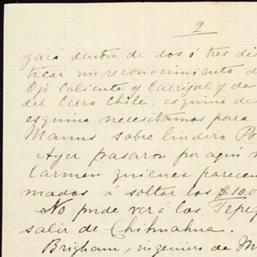 2
gará dentro de dos ó tres di
ticar un reconocimiento d
Ojo Caliente y Carrizal y da
del Cerro Chile, esquina de
esquina necesitamos para
Manns sobre lindero Po
Ayer pasaron por aquí
Carmen quienes parecen
mados á soltar los $10,0
No pude ver á los Tepez
salir de Chihuahua.
Brigham, ingeniero de M